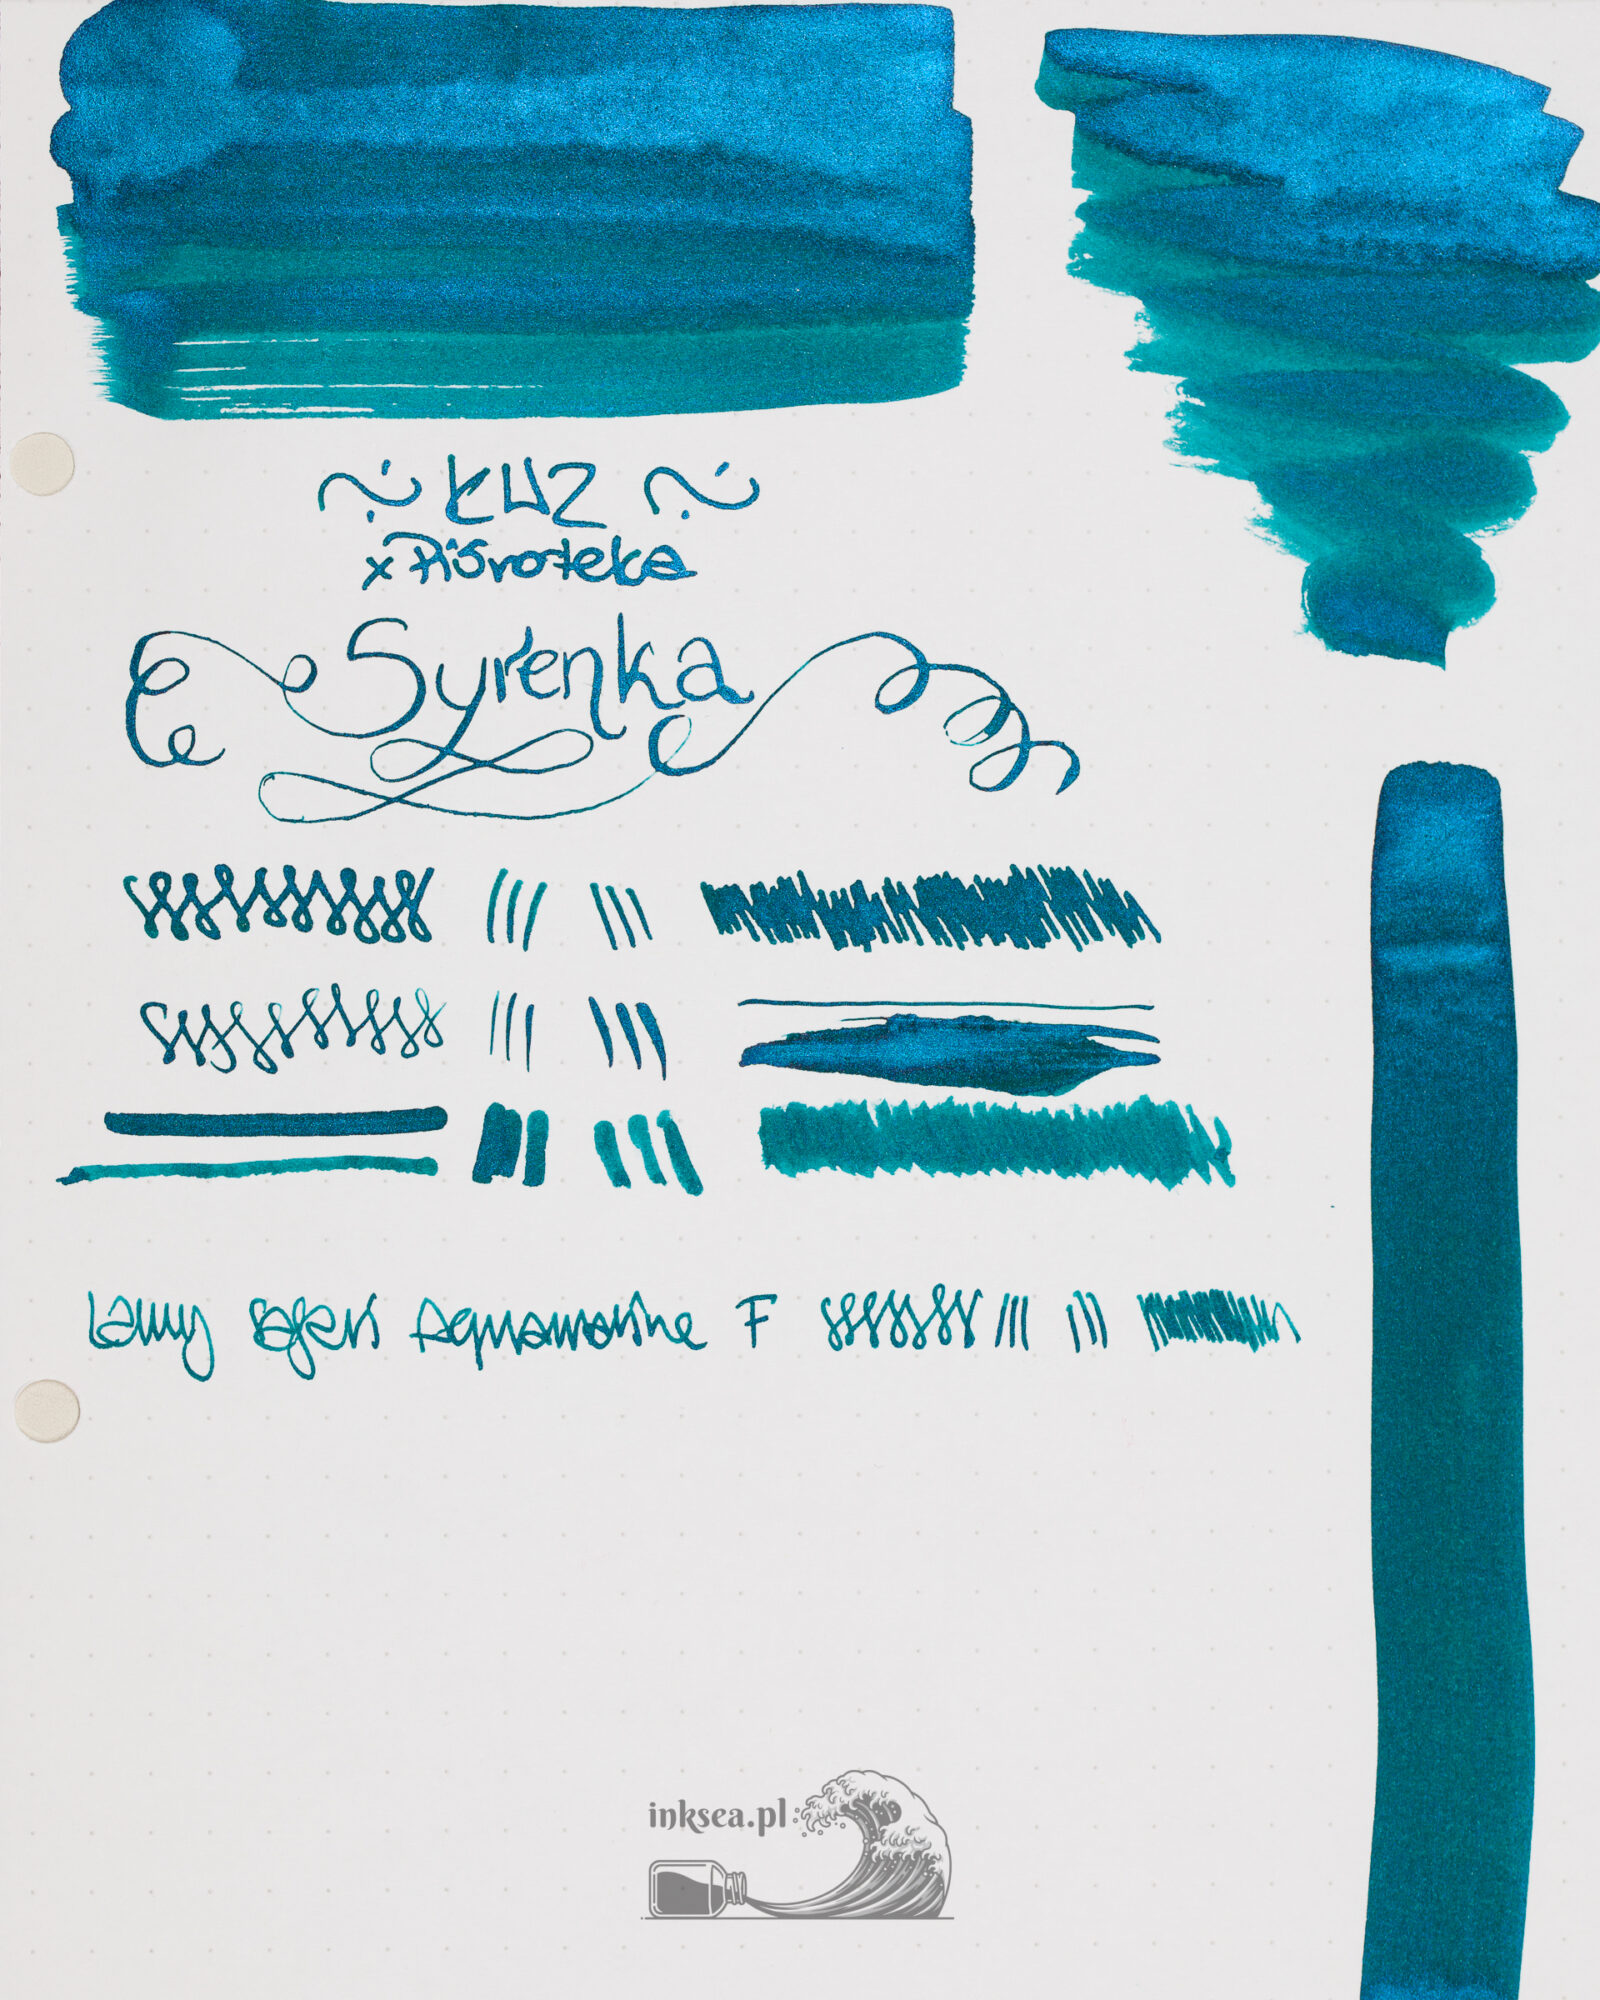 ~ KWZ ~
x Piśroteka
Syrenka
Lamy Safari Aquamarine F
inksea.pl